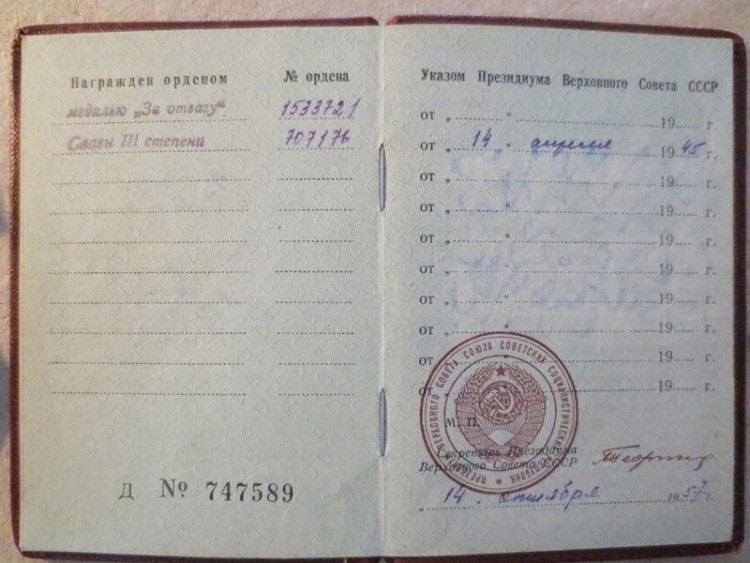 Награжден орденом
№ ордена
медалью „За отвагу"
1533721
Славы III степени
707176
Д № 747589
Указом Президиума Верховного Совета СССР
от „ " 19 г.
от „ 14 " апреля 1945 г.
от „ " 19 г.
от „ " 19 г.
от „ " 19 г.
от „ " 19 г.
от „ " 19 г.
от „ " 19 г.
от „ " 19 г.
от „ " 19 г.
ПРЕЗИДИУМ ВЕРХОВНОГО СОВЕТА СОЮЗА СОВЕТСКИХ СОЦИАЛИСТИЧЕСКИХ РЕСПУБЛИК
М. П.
Секретарь Президиума
Верховного Совета СССР
„ 14 " октября 1957 г.